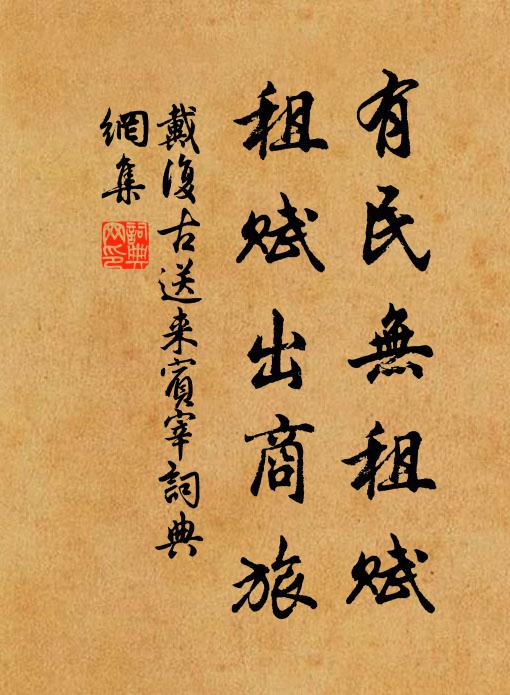 有民無租賦
租賦出商旅
戴復古送来賓宰詞典
網集
詞典
网印